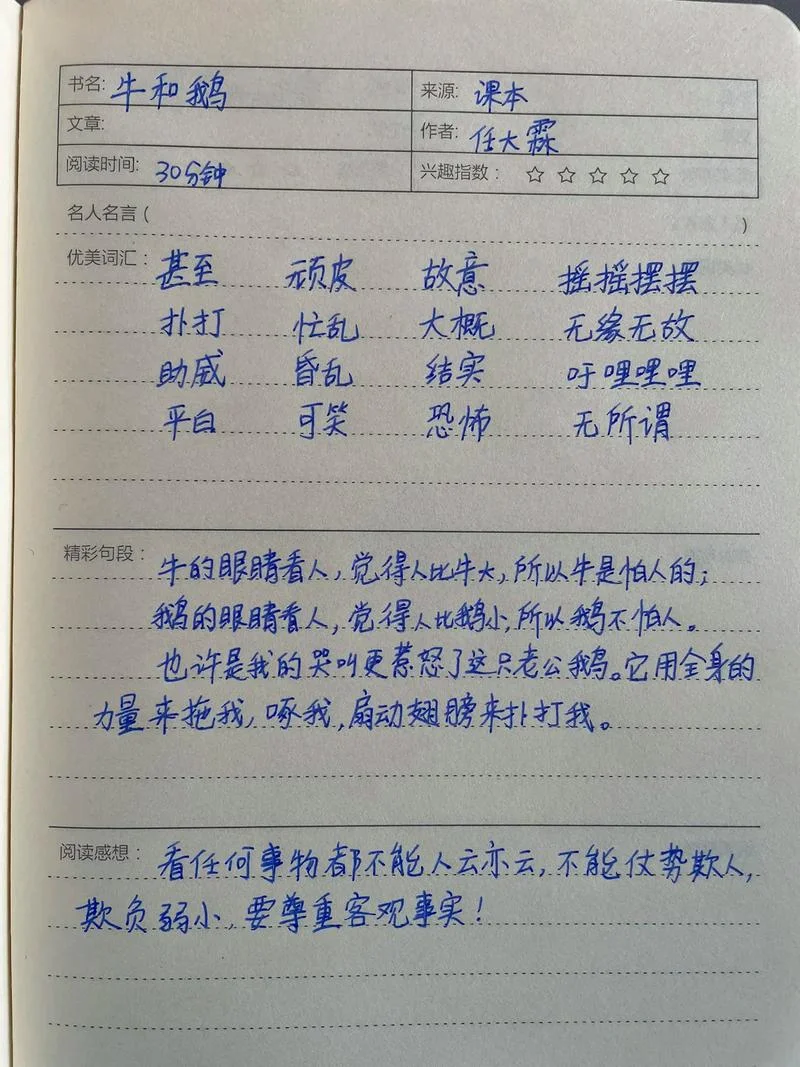 书名: 牛和鹅 来源: 课本
文章: 作者: 任大霖
阅读时间: 30分钟 兴趣指数: ☆ ☆ ☆ ☆ ☆
名人名言 ( )
优美词汇: 甚至 顽皮 故意 摇摇摆摆
扑打 忙乱 大概 无缘无故
助威 昏乱 结实 吁哩哩哩
平白 可笑 恐怖 无所谓
精彩句段: 牛的眼睛看人,觉得人比牛大,所以牛是怕人的;
鹅的眼睛看人,觉得人比鹅小,所以鹅不怕人。
也许是我的哭叫更惹怒了这只老公鹅。它用全身的
力量来拖我,啄我,扇动翅膀来扑打我。
阅读感想: 看任何事物都不能人云亦云,不能仗势欺人,
欺负弱小,要尊重客观事实!